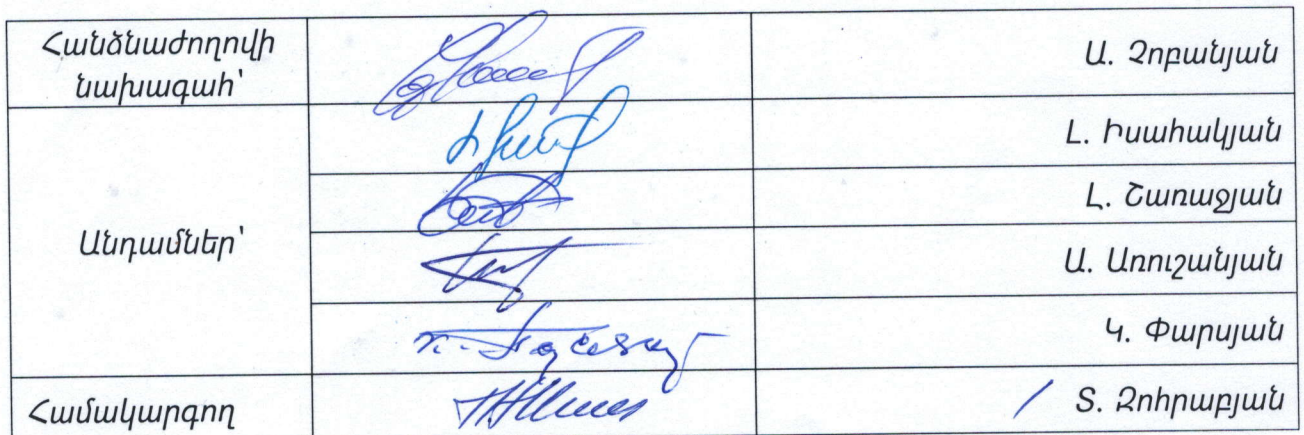 Հանձնաժողովի
նախագահ՝
Ա. Չոբանյան
Լ. Իսահակյան
Լ. Շառաջյան
Անդամներ՝
Ա. Առուշանյան
Կ. Փարսյան
Համակարգող
/ Տ. Զոհրաբյան